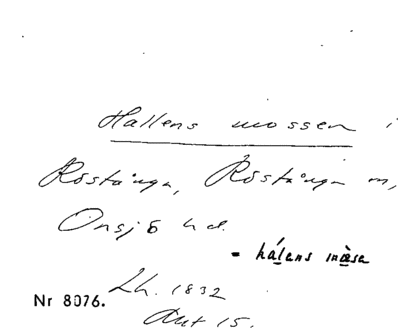 Hallens mossen i
Röstånga, Röstånga sn,
Onsjö hd.
= hálens mòsa
Nr 8076. Lh. 1832
Akt 15.